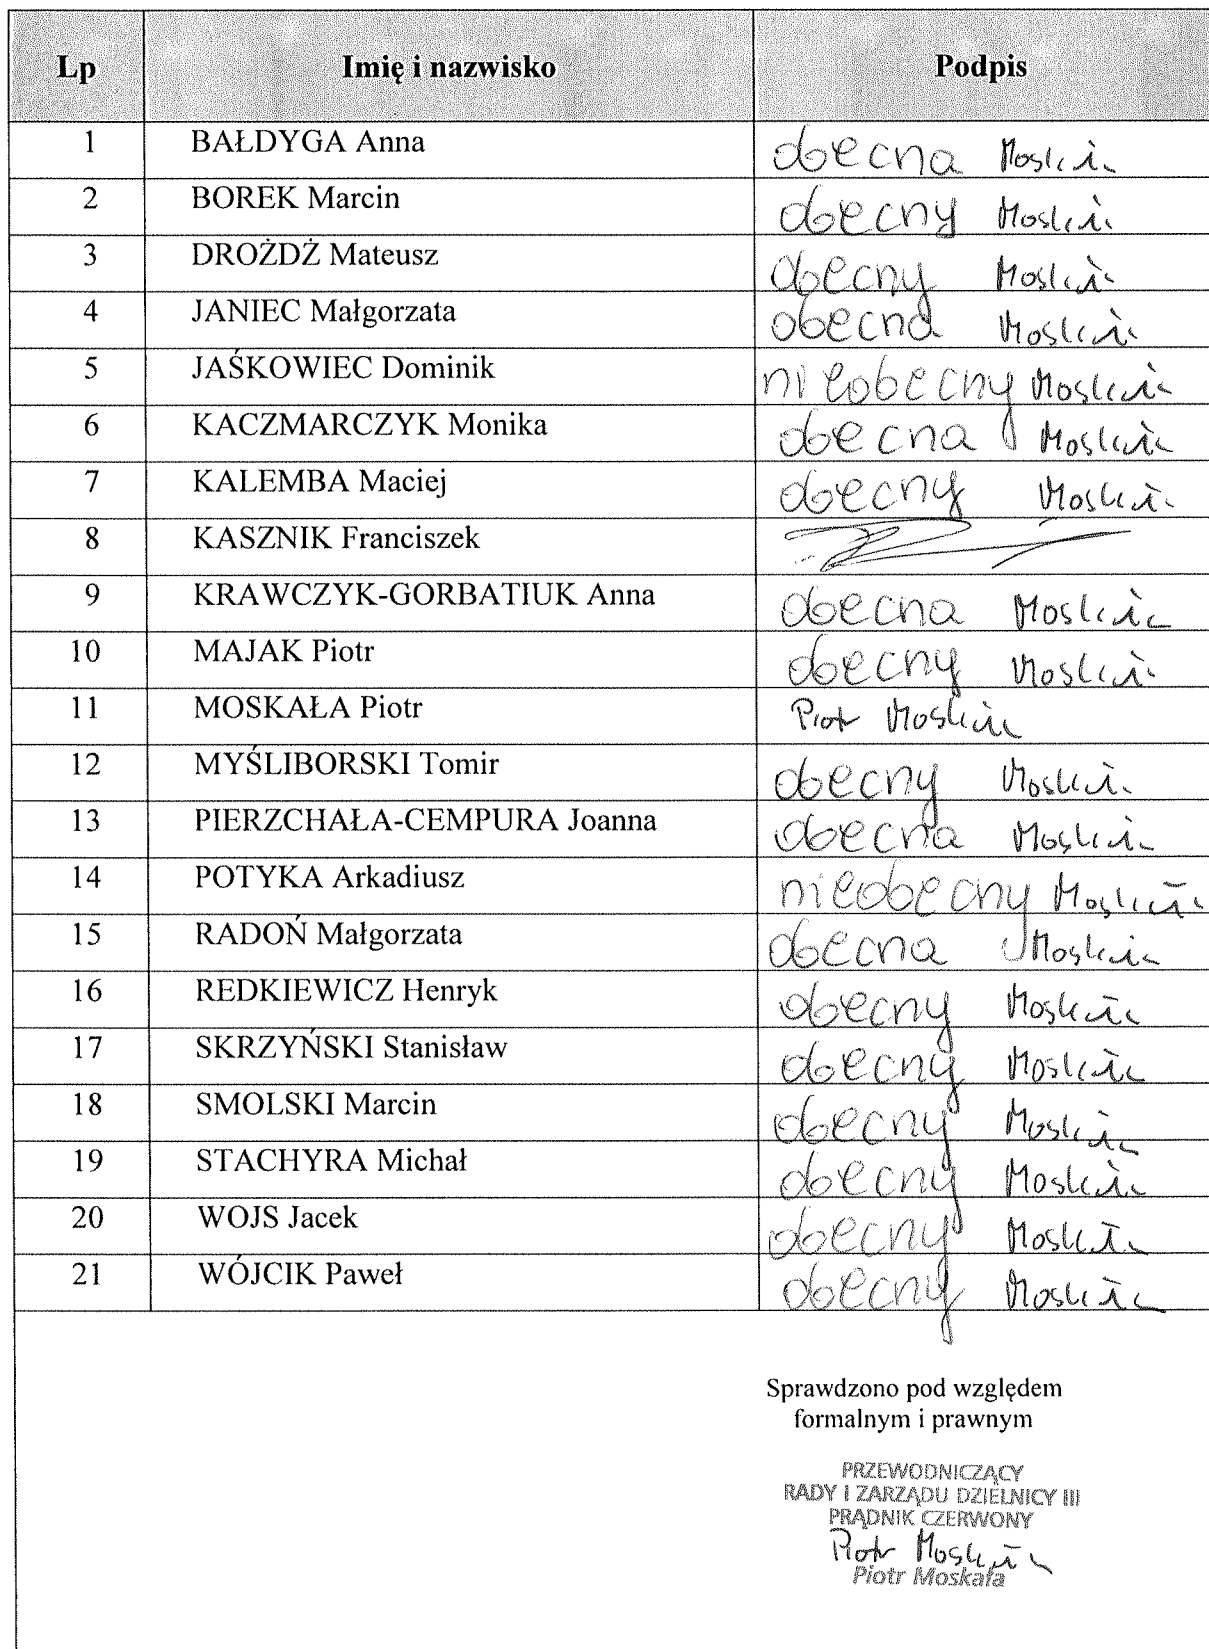 Lp Imię i nazwisko Podpis
1 BAŁDYGA Anna obecna Moskała
2 BOREK Marcin obecny Moskała
3 DROŻDŻ Mateusz obecny Moskała
4 JANIEC Małgorzata obecna Moskała
5 JAŚKOWIEC Dominik nieobecny Moskała
6 KACZMARCZYK Monika obecna Moskała
7 KALEMBA Maciej obecny Moskała
8 KASZNIK Franciszek
9 KRAWCZYK-GORBATIUK Anna obecna Moskała
10 MAJAK Piotr obecny Moskała
11 MOSKAŁA Piotr Piotr Moskała
12 MYŚLIBORSKI Tomir obecny Moskała
13 PIERZCHAŁA-CEMPURA Joanna obecna Moskała
14 POTYKA Arkadiusz nieobecny Moskała
15 RADOŃ Małgorzata obecna Moskała
16 REDKIEWICZ Henryk obecny Moskała
17 SKRZYŃSKI Stanisław obecny Moskała
18 SMOLSKI Marcin obecny Moskała
19 STACHYRA Michał obecny Moskała
20 WOJS Jacek obecny Moskała
21 WÓJCIK Paweł obecny Moskała
Sprawdzono pod względem
formalnym i prawnym
PRZEWODNICZĄCY
RADY I ZARZĄDU DZIELNICY III
PRĄDNIK CZERWONY
Piotr Moskała
Piotr Moskała